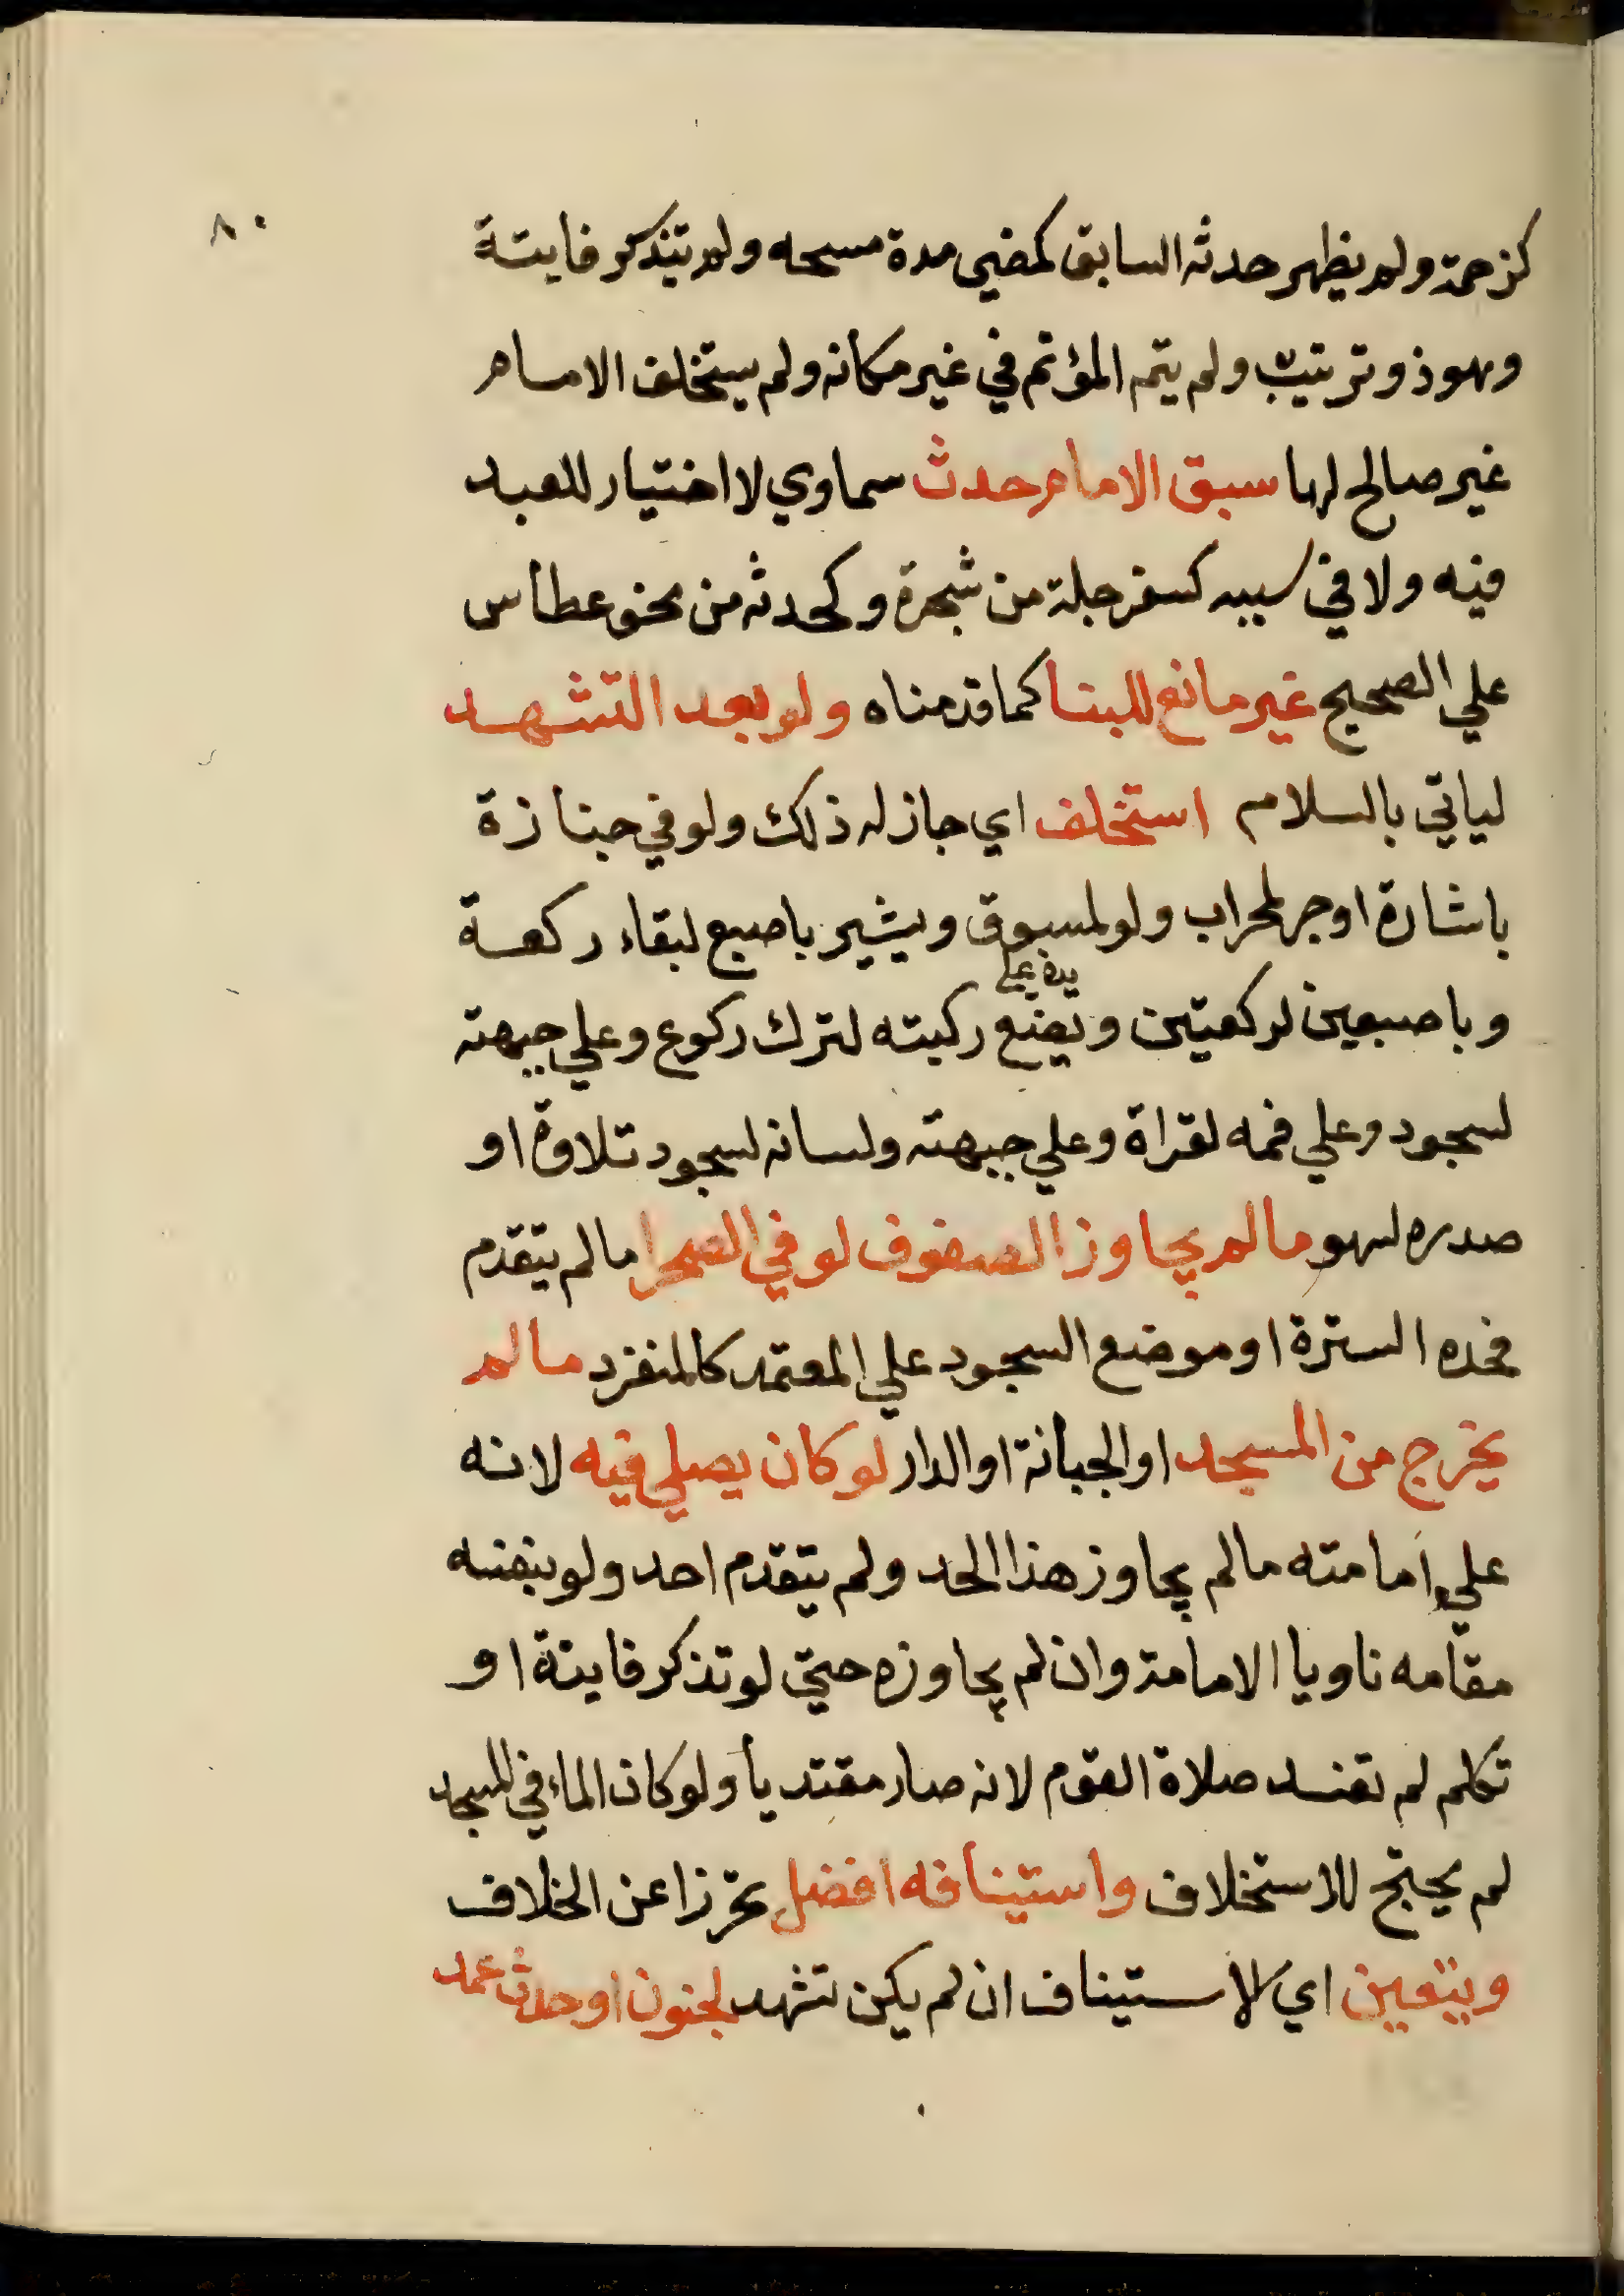 ٨٠
كزحمة ولم يظهر حدثه السابق كمضي مدة مسحه ولم يتذكر فايتة
وهوذو ترتيب ولم يتم المؤتم في غير مكانه ولم يستخلف الامام
غير صالح لها سبق الامام حدث سماوي لا اختيار للعبد
فيه ولا في سببه كسفرجلة من شجرة وكحدثه من نحو عطاس
علي الصحيح غير مانع للبنا كما قدمناه ولو بعد التشهد
لياتي بالسلام استخلف اي جاز له ذلك ولو في جنازة
باشارة او جر لمحراب ولو لمسبوق ويشير باصبع لبقاء ركعة
وباصبعين لركعتين ويضع يده علي ركبته لترك ركوع وعلي جبهته
لسجود وعلي فمه لقراة وعلي جبهته ولسانه لسجود تلاوة او
صدره لسهو مالم يجاوز الصفوف لو في الصحرا مالم يتقدم
فحده السترة او موضع السجود علي المعتمد كالمنفرد مالم
يخرج من المسجد او الجبانة او الدار لو كان يصلي فيه لانه
علي امامته مالم يجاوز هذا الحد ولم يتقدم احد ولو بنفسه
مقامه ناويا الامامة وان لم يجاوزه حتي لو تذكر فايتة او
تكلم لم تفسد صلاة القوم لانه صار مقتديا ولو كان الماء في المسجد
لم يحتج للاستخلاف واستينافه افضل تحرزا عن الخلاف
ويتعين اي الاستيناف ان لم يكن تشهد لجنون او حدث عمد